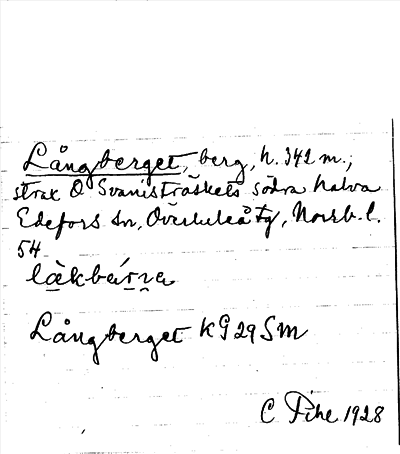 Långberget, berg, h. 342 m.;
strax O Svanisträskets södra halva
Edefors sn, Överluleå tg, Norrb. l.
54
Långberget KG 29 SM
C Pihl 1928